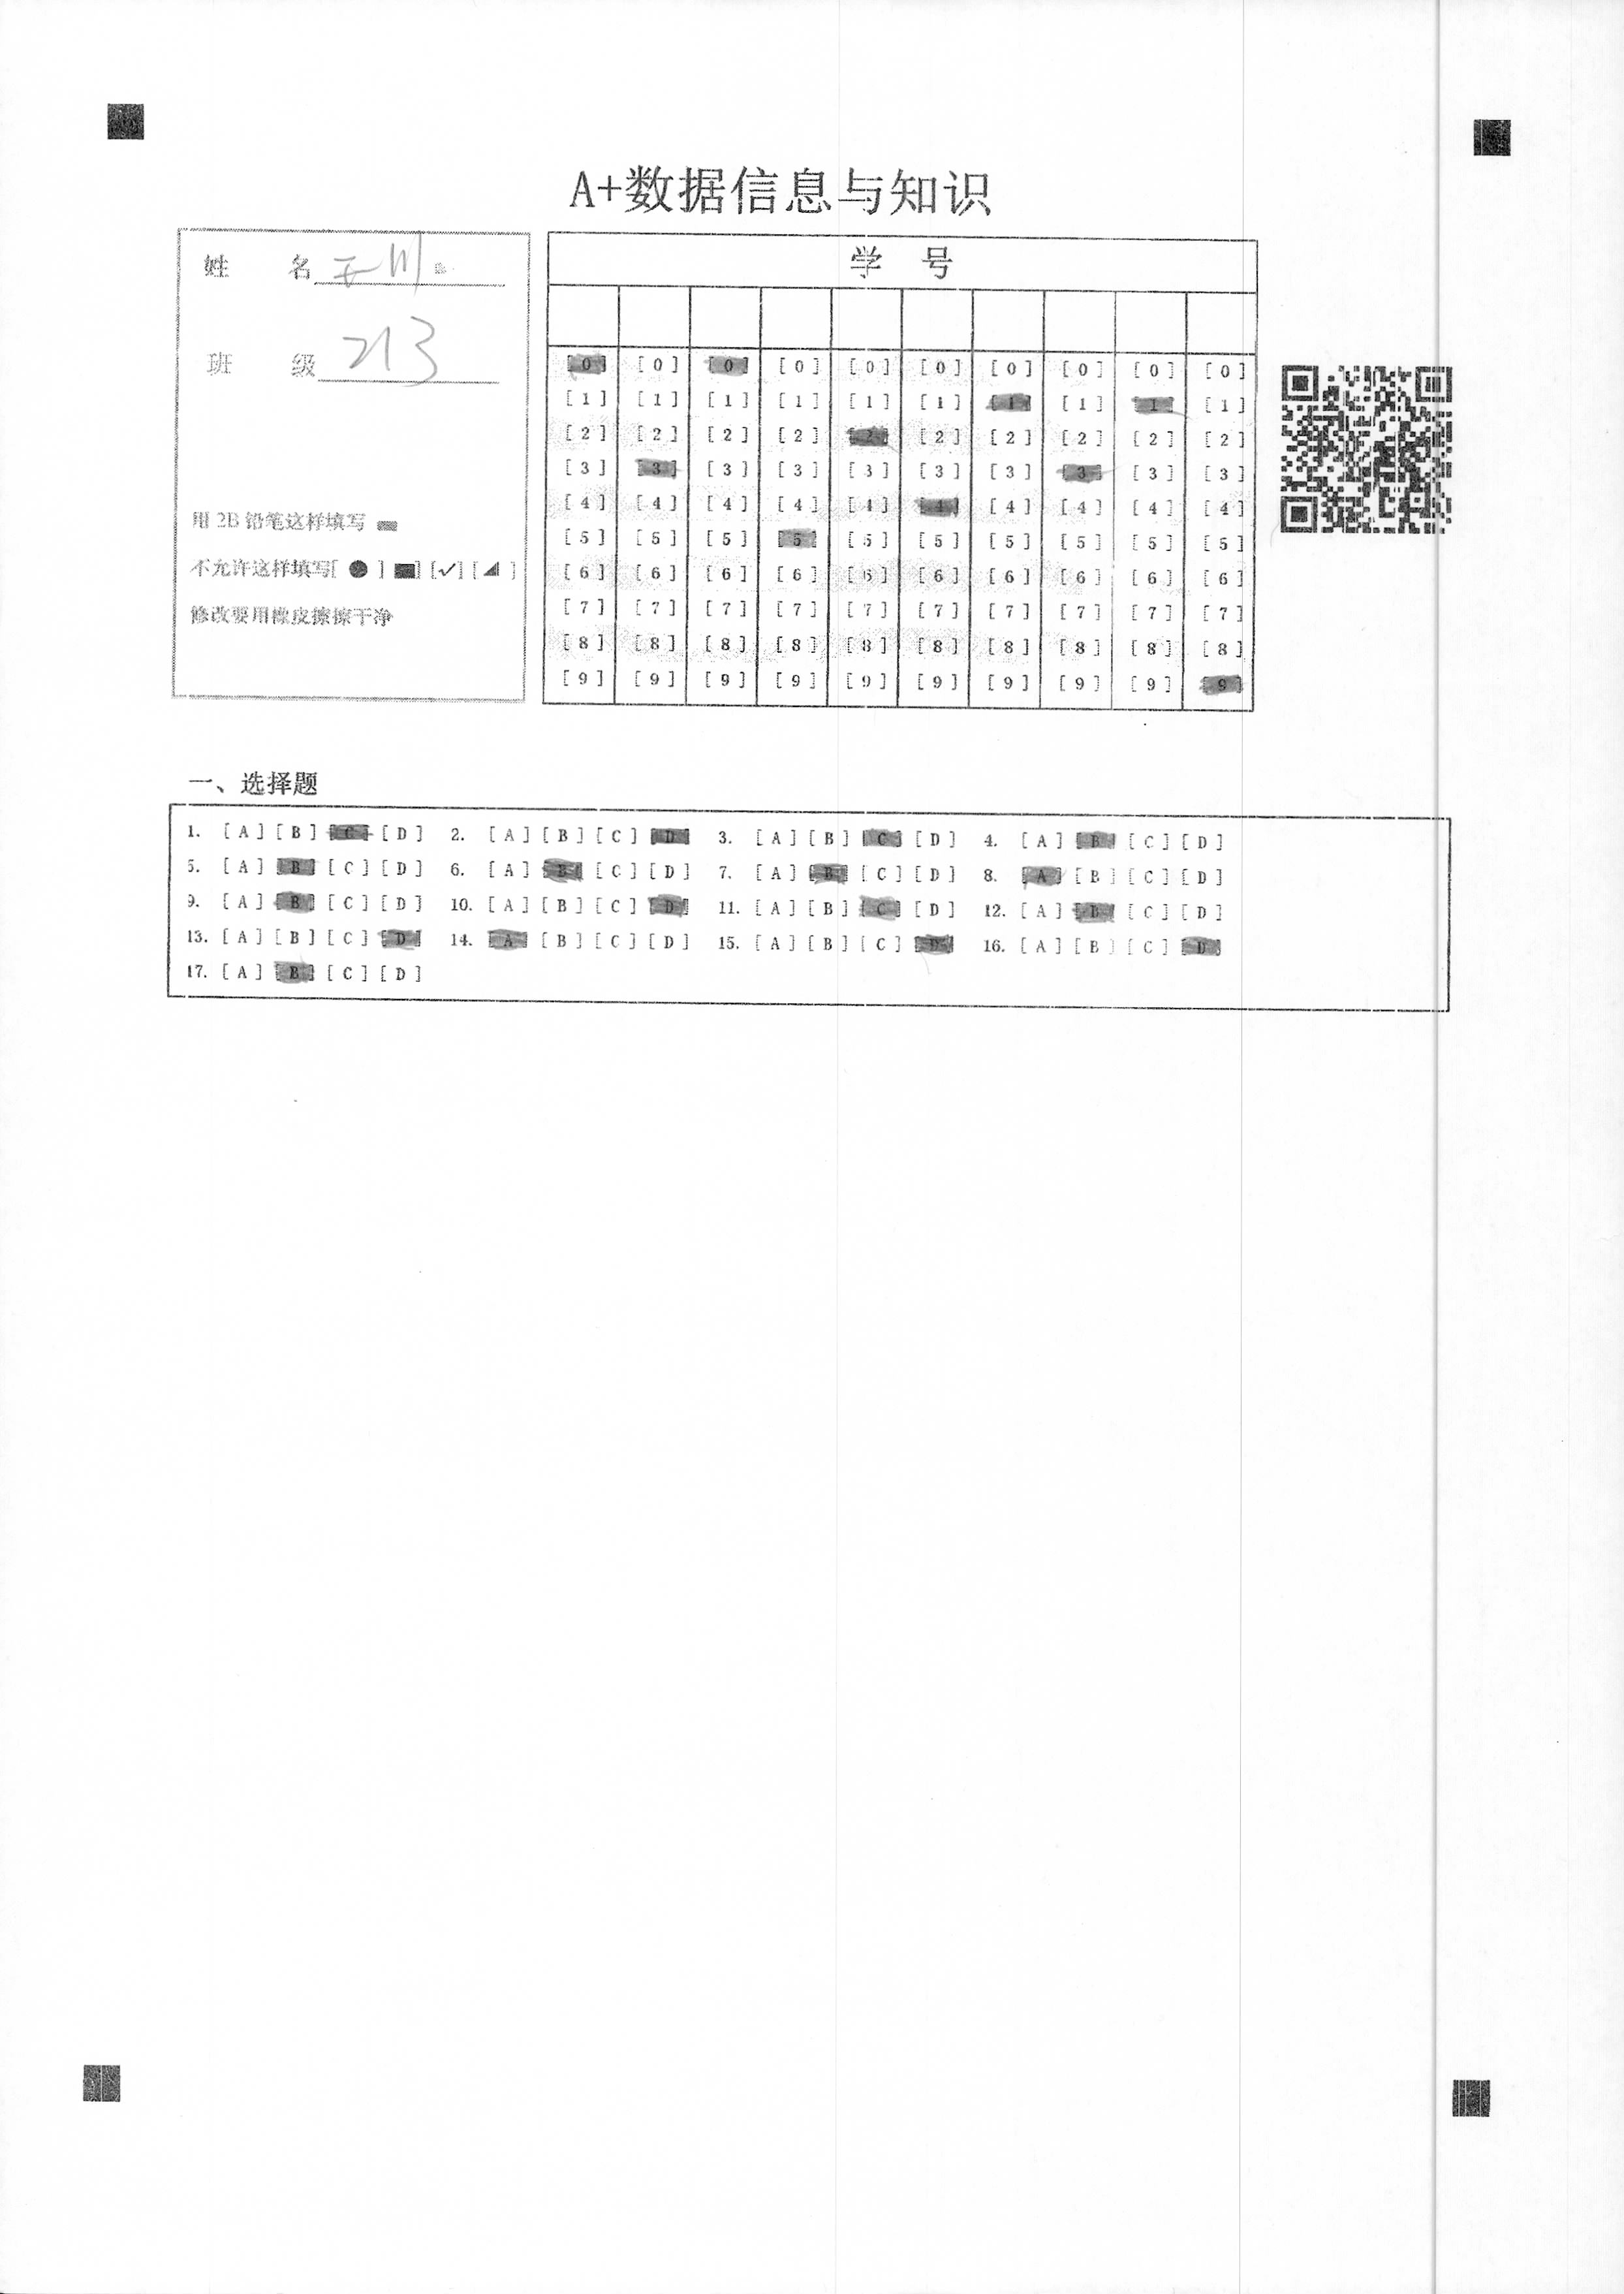 A+数据信息与知识
姓 名
班 级 213
用 2B 铅笔这样填写
不允许这样填写[ ● ] [■] [✓] [◢ ]
修改要用橡皮擦擦干净
学 号
[0] [0] [0] [0] [0] [0] [0] [0] [0] [0]
[1] [1] [1] [1] [1] [1] [1] [1] [1] [1]
[2] [2] [2] [2] [2] [2] [2] [2] [2] [2]
[3] [3] [3] [3] [3] [3] [3] [3] [3] [3]
[4] [4] [4] [4] [4] [4] [4] [4] [4] [4]
[5] [5] [5] [5] [5] [5] [5] [5] [5] [5]
[6] [6] [6] [6] [6] [6] [6] [6] [6] [6]
[7] [7] [7] [7] [7] [7] [7] [7] [7] [7]
[8] [8] [8] [8] [8] [8] [8] [8] [8] [8]
[9] [9] [9] [9] [9] [9] [9] [9] [9] [9]
一、选择题
1. [A] [B] [C] [D] 2. [A] [B] [C] [D] 3. [A] [B] [C] [D] 4. [A] [B] [C] [D]
5. [A] [B] [C] [D] 6. [A] [B] [C] [D] 7. [A] [B] [C] [D] 8. [A] [B] [C] [D]
9. [A] [B] [C] [D] 10. [A] [B] [C] [D] 11. [A] [B] [C] [D] 12. [A] [B] [C] [D]
13. [A] [B] [C] [D] 14. [A] [B] [C] [D] 15. [A] [B] [C] [D] 16. [A] [B] [C] [D]
17. [A] [B] [C] [D]